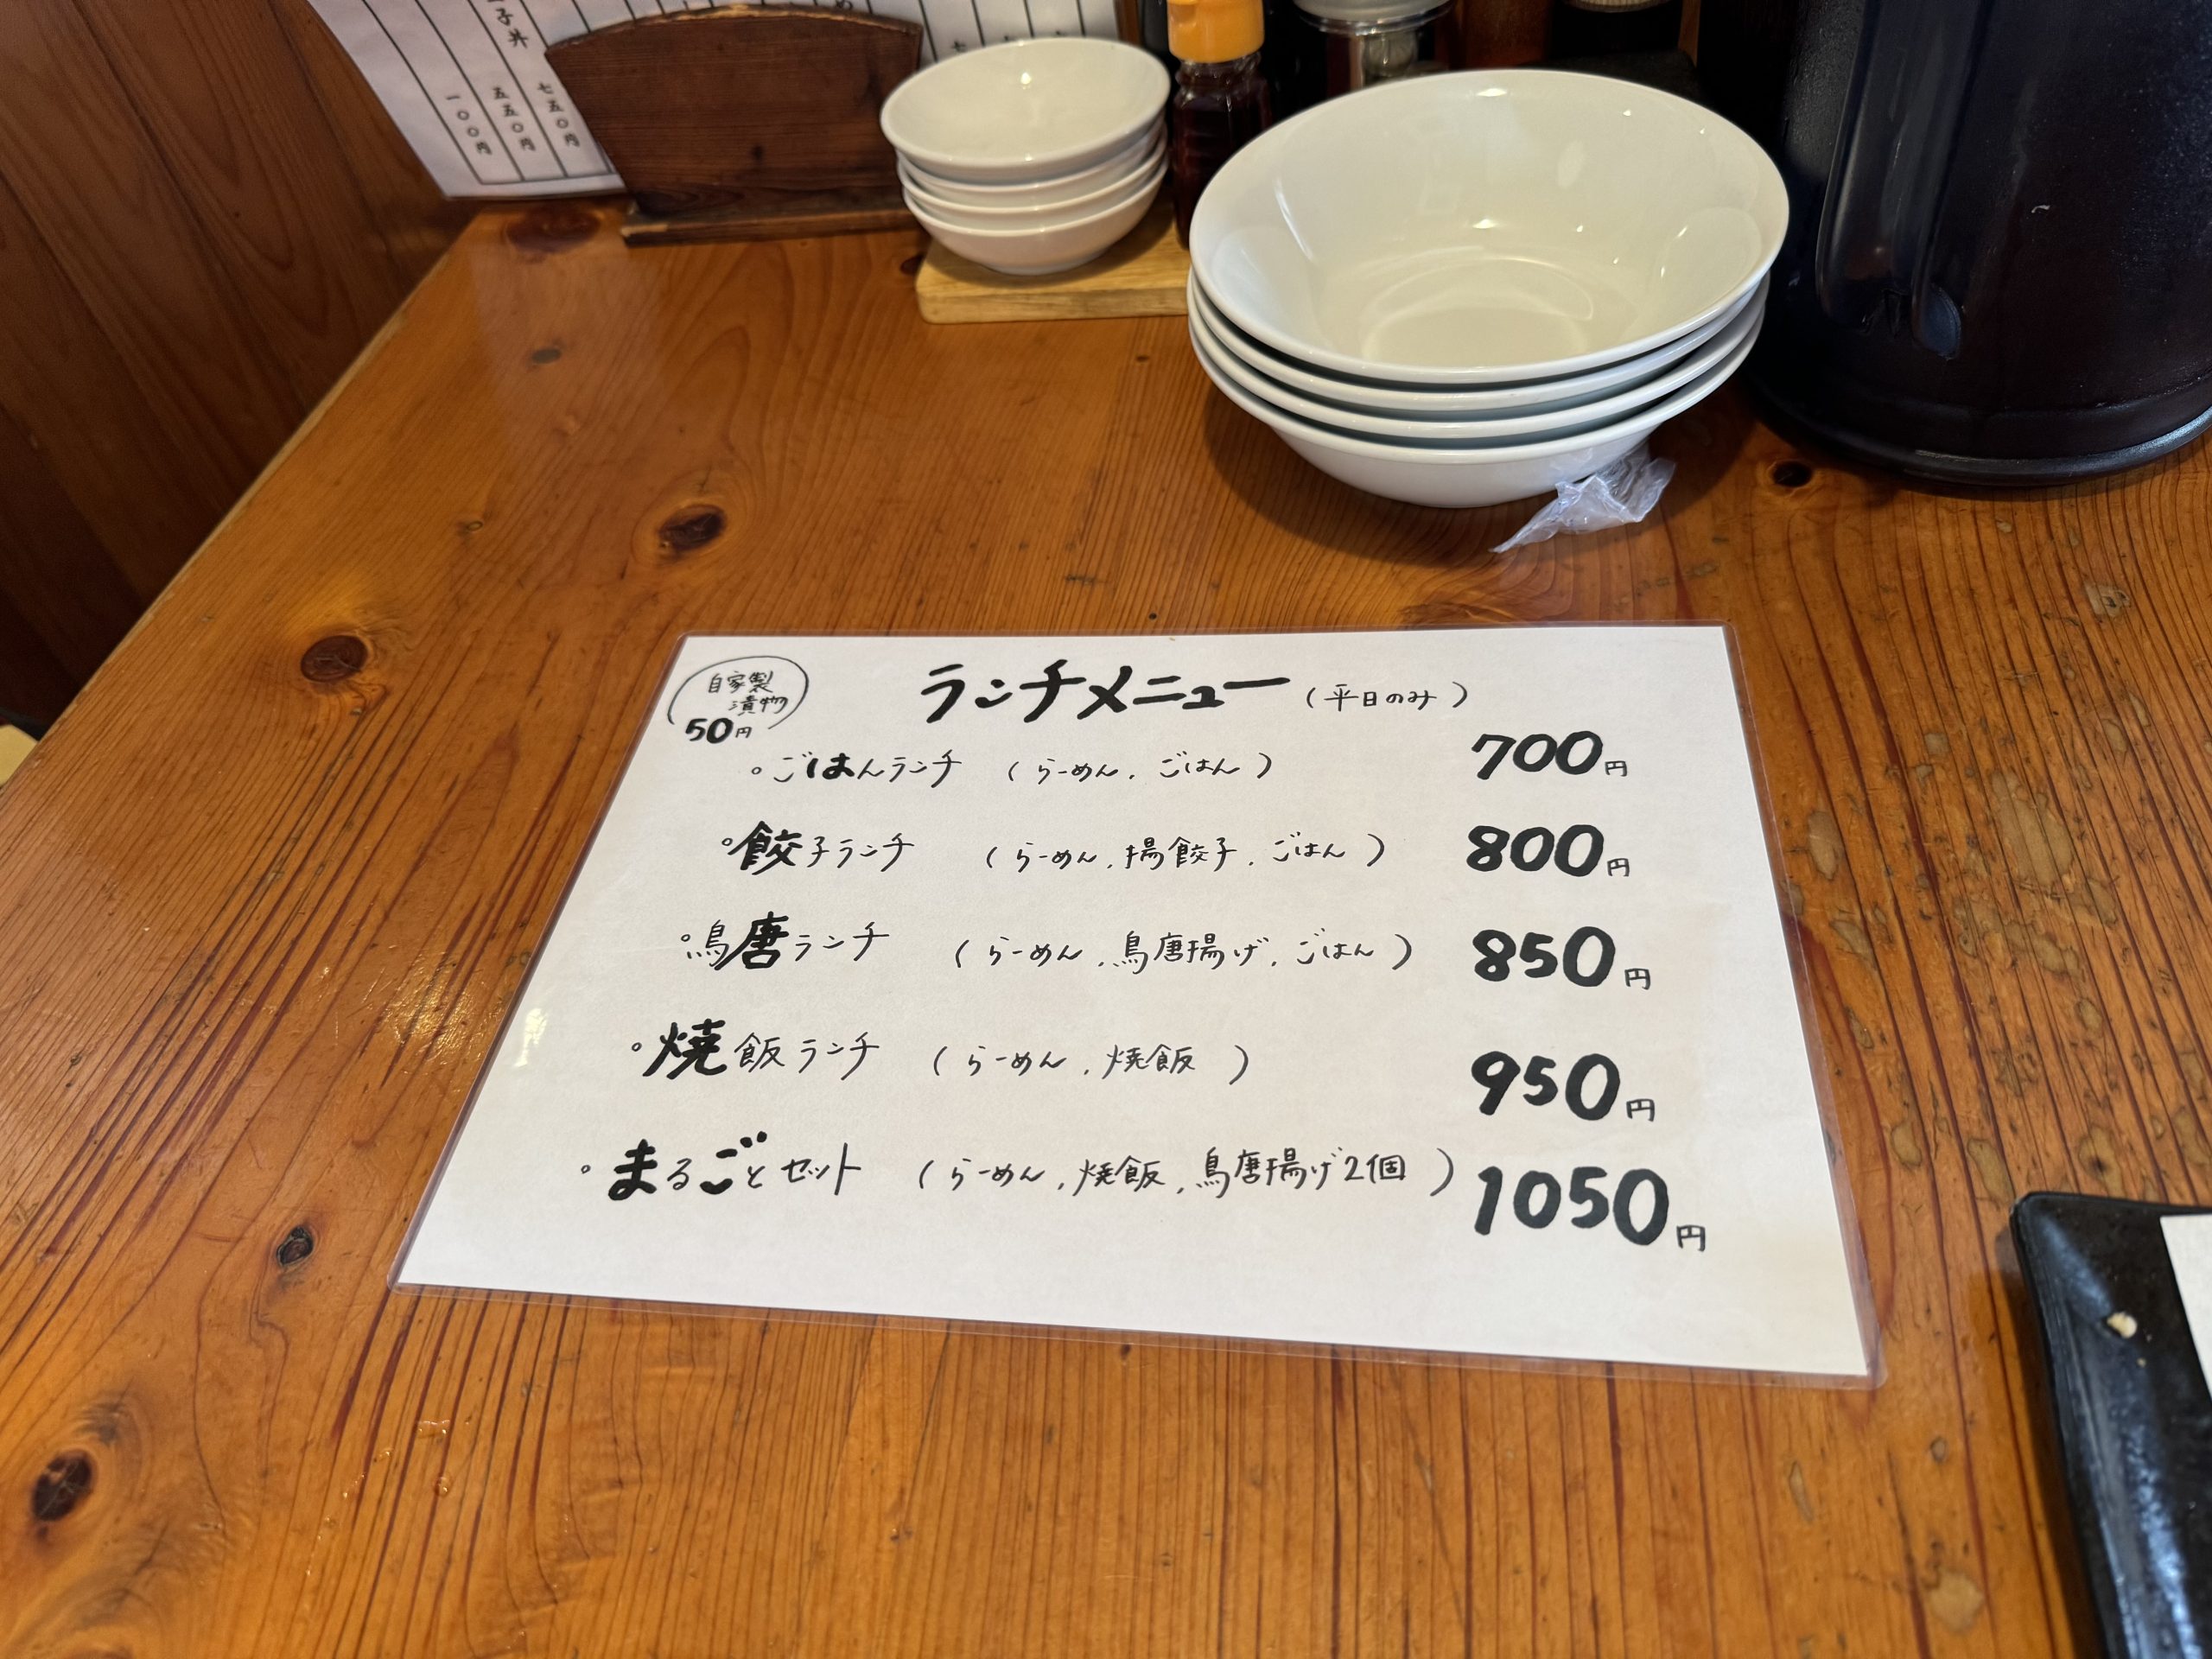 子丼
七五〇円
五五〇円
一〇〇円
自家製
漬物
50円
ランチメニュー（平日のみ）
。ごはんランチ （らーめん、ごはん） 700円
。餃子ランチ （らーめん、揚餃子、ごはん） 800円
。鳥唐ランチ （らーめん、鳥唐揚げ、ごはん） 850円
。焼飯ランチ （らーめん、焼飯） 950円
。まるごとセット （らーめん、焼飯、鳥唐揚げ2個） 1050円